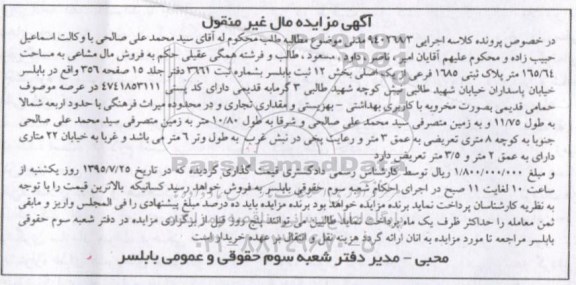 آگهی مزایده مال غیر منقول
در خصوص پرونده کلاسه اجرایی 940268/3 مدنی موضوع مطالبه طلب محکوم له آقای سید محمد علی صالحی با وکالت اسماعیل
حبیب زاده و محکوم علیهم آقایان امیر، ناصر، داود، مسعود، طالب و فرشته همگی عقیلی حکم به فروش مال مشاعی به مساحت
165/64 متر پلاک ثبتی 1685 فرعی از یک اصلی بخش 12 ثبت بابلسر بشماره ثبت 3661 دفتر جلد 15 صفحه 356 واقع در بابلسر
خیابان پاسداران خیابان شهید طالبی نبش کوچه شهید طالبی 3 گرمابه قدیمی دارای کد پستی 4741853111 در عرصه موصوف
حمامی قدیمی بصورت مخروبه با کاربری بهداشتی - بهزیستی و مقداری تجاری و در محدوده میراث فرهنگی با حدود اربعه شمالا
به طول 11/75 و به زمین متصرفی سید محمد علی صالحی و شرقا به طول 10/80 متر به زمین متصرفی سید محمد علی صالحی
جنوبا به کوچه 8 متری تعریضی به عمق 3 متر و رعایت پخی در نبش عرصه به طول وتر 6 متر می باشد و غربا به خیابان 22 متری
دارای به عمق 2 متر و 3/5 متر تعریض دارد
و مبلغ 1/800/000/000 ریال توسط کارشناس رسمی دادگستری قیمت گذاری گردیده که در تاریخ 1395/7/25 روز یکشنبه از
ساعت 10 لغایت 11 صبح در اجرای احکام شعبه سوم حقوقی بابلسر به فروش خواهد رسید کسانیکه بالاترین قیمت را با توجه
به نظریه کارشناسان پرداخت نماید برنده مزایده خواهد بود برنده مزایده باید ده درصد مبلغ پیشنهادی را فی المجلس واریز و مابقی
ثمن معامله را حداکثر ظرف یک ماه پرداخت نماید طالبین می توانند پنج روز قبل از برگزاری مزایده در دفتر شعبه سوم حقوقی
بابلسر مراجعه تا مورد مزایده به انان ارائه گردد هزینه نقل و انتقال به عهده خریدار است
محبی - مدیر دفتر شعبه سوم حقوقی و عمومی بابلسر